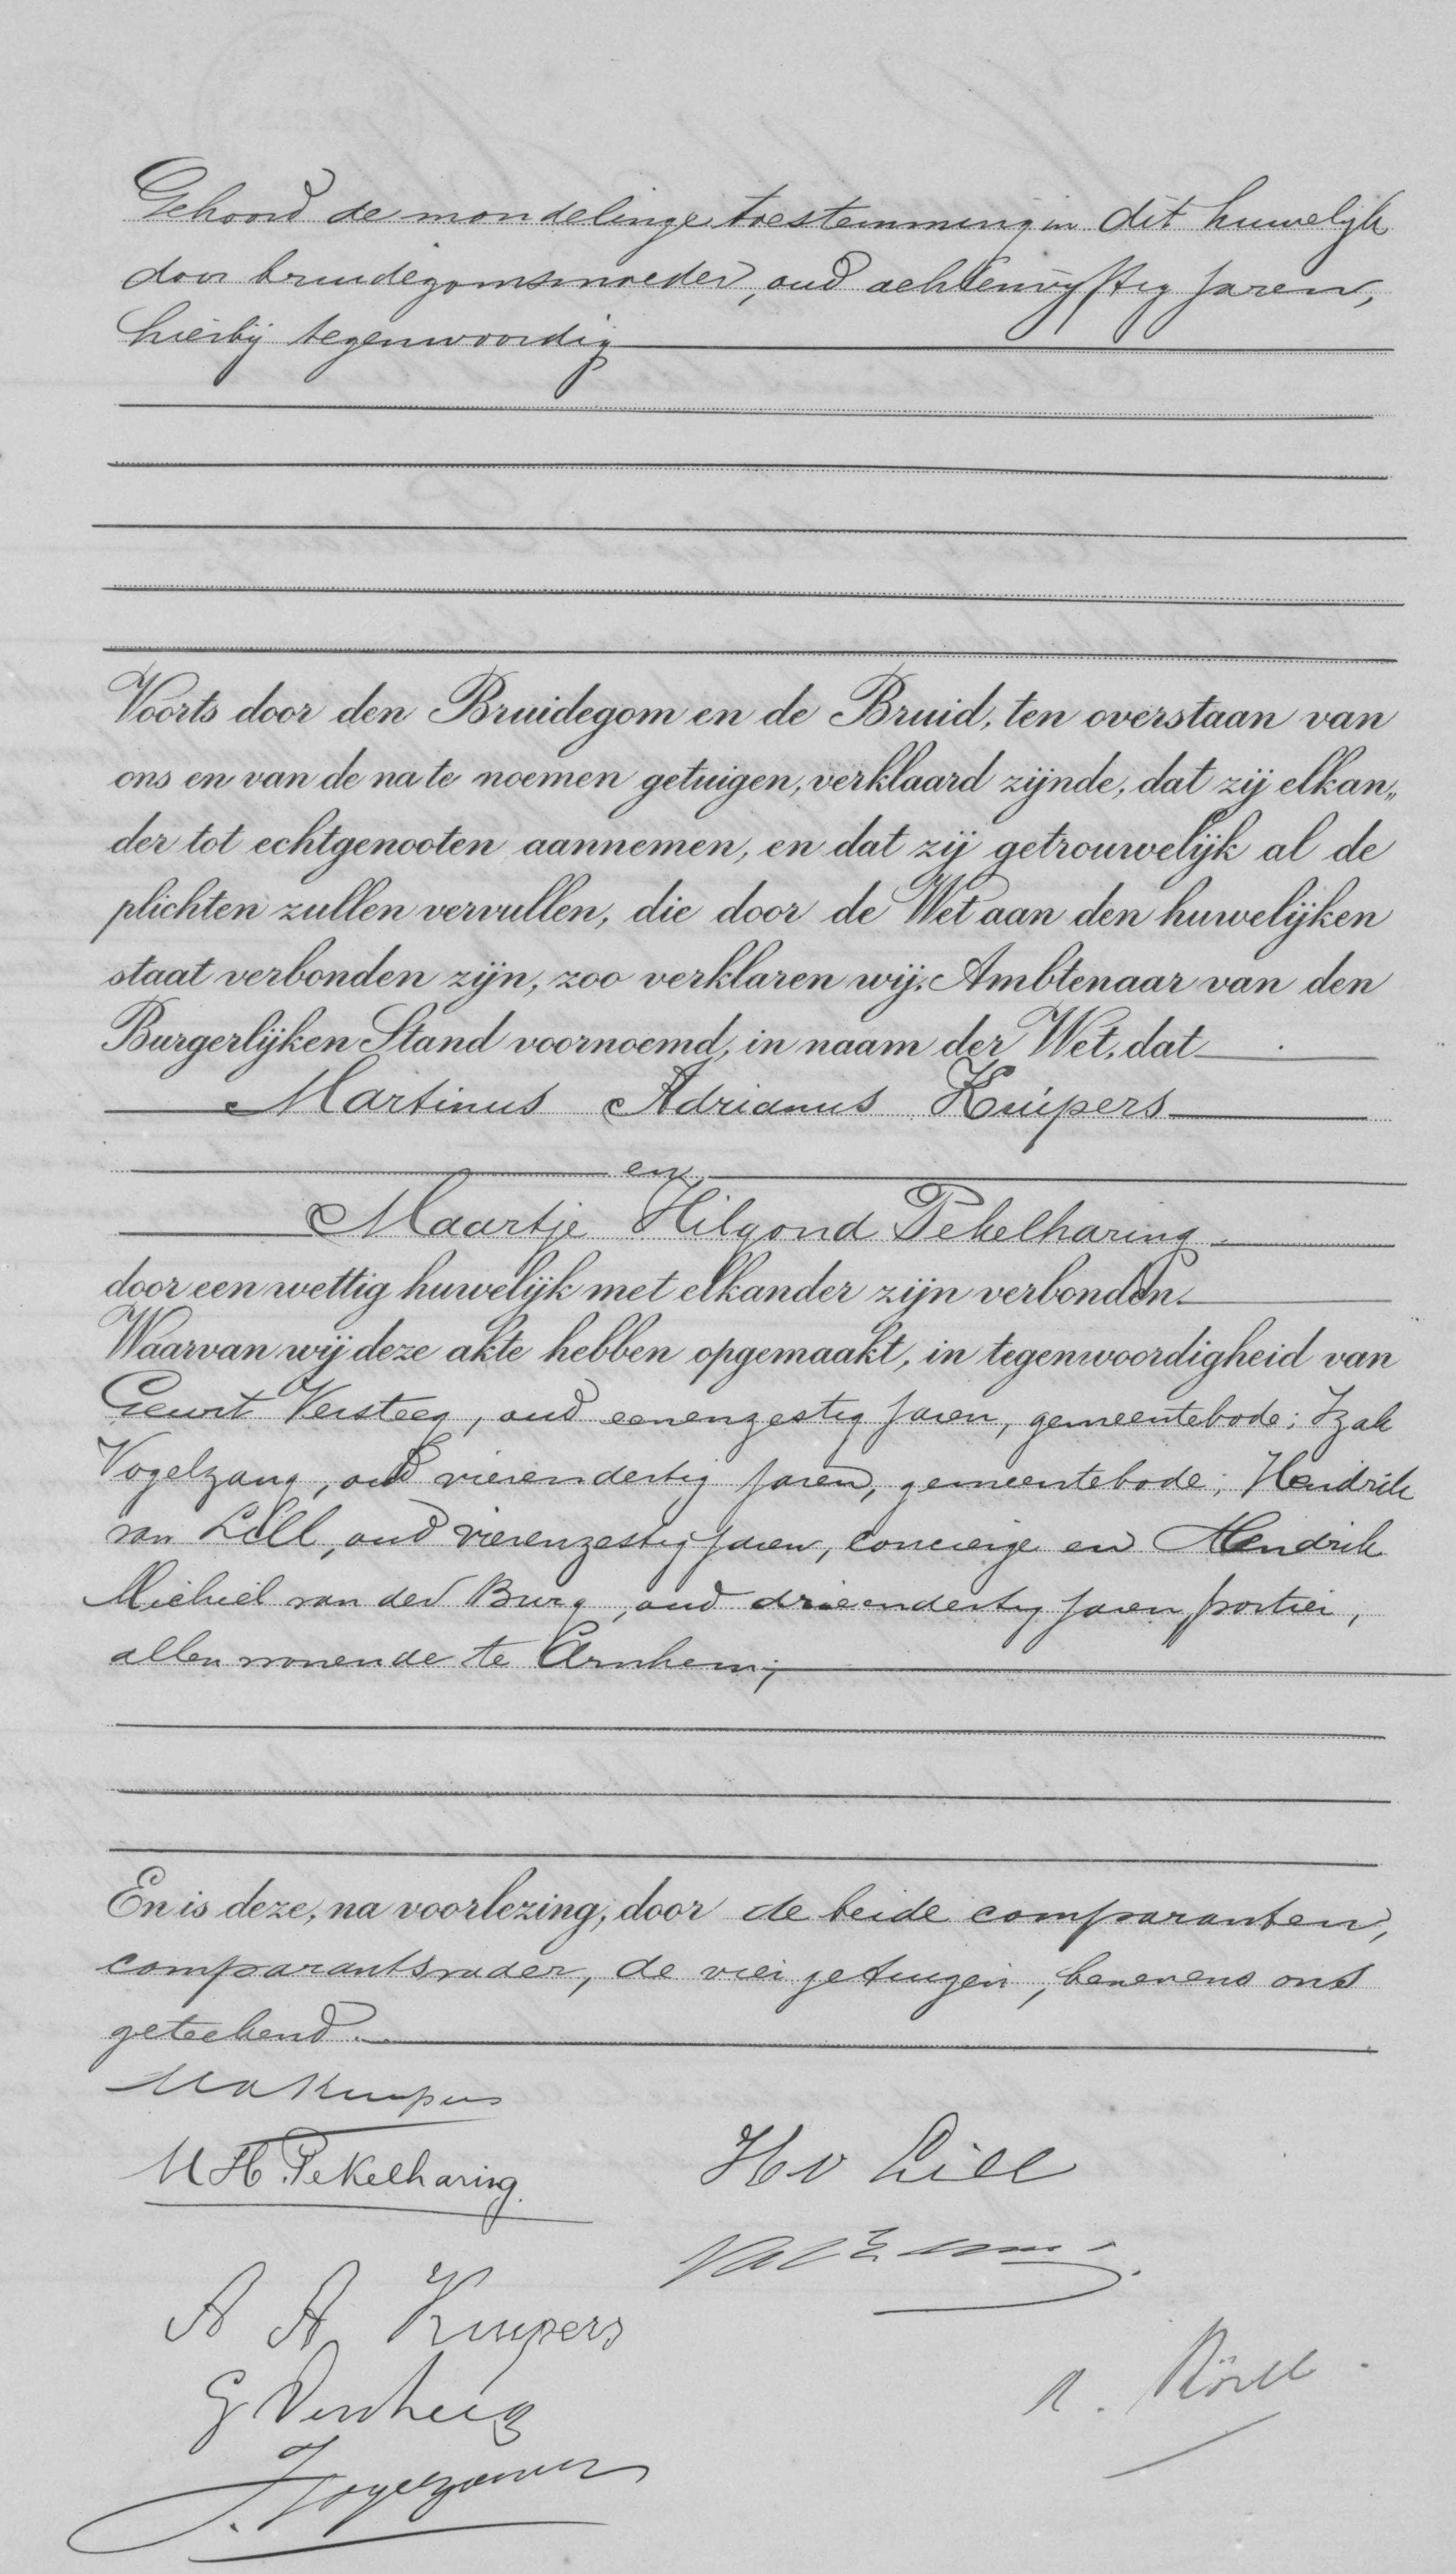 Gehoord de mondelinge toestemming in dit huwelijk
door bruidegomsmoeder, oud achtenvijftig jaren,
hierbij tegenwoordig
Voorts door den Bruidegom en de Bruid, ten overstaan van
ons en van de na te noemen getuigen, verklaard zijnde, dat zij elkan„
der tot echtgenooten aannemen, en dat zij getrouwelijk al de
plichten zullen vervullen, die door de Wet aan den huwelijken
staat verbonden zijn, zoo verklaren wij, Ambtenaar van den
Burgerlijken Stand voornoemd, in naam der Wet, dat
Martinus Adrianus Kuipers
en
Maartje Hilgond Pekelharing
door een wettig huwelijk met elkander zijn verbonden.
Waarvan wij deze akte hebben opgemaakt, in tegenwoordigheid van
Geurt Versteeg, oud eenenzestig jaren, gemeentebode; Izak
Vogelzang, oud vierendertig jaren, gemeentebode; Hendrik
van Lill, oud vierenzestig jaren, concierge en Hendrik
Michiel van der Burg, oud drieendertig jaren, portier,
allen wonende te Arnhem;
En is deze, na voorlezing, door de beide comparanten,
comparantsvader, de vier getuigen, benevens ons
geteekend.
MAKuipers
M H Pekelharing.
H v Lill
A A Kuipers
G Versteeg
J. Vogelzang